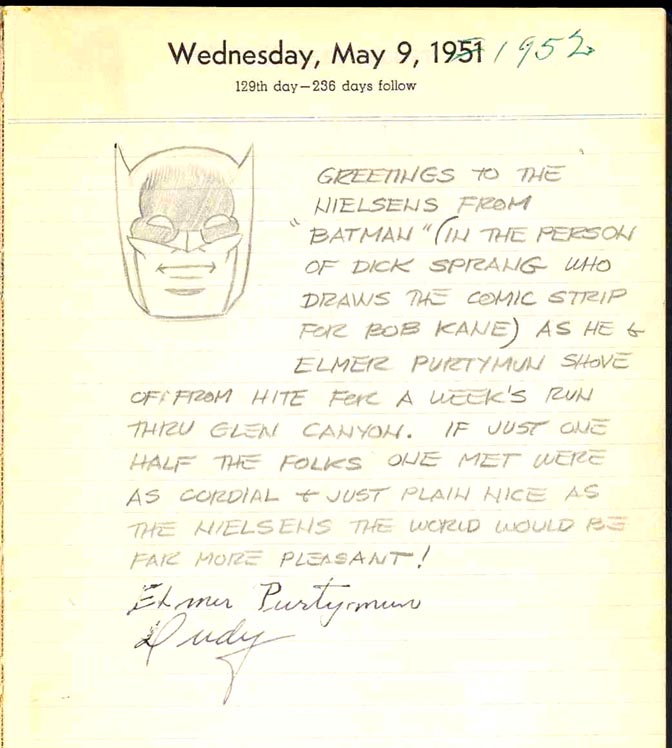 Wednesday, May 9, 1951 1952
129th day—236 days follow
GREETINGS TO THE
NIELSENS FROM
"BATMAN" (IN THE PERSON
OF DICK SPRANG WHO
DRAWS THE COMIC STRIP
FOR BOB KANE) AS HE &
ELMER PURTYMUN SHOVE
OFF FROM HITE FOR A WEEK'S RUN
THRU GLEN CANYON. IF JUST ONE
HALF THE FOLKS ONE MET WERE
AS CORDIAL & JUST PLAIN NICE AS
THE NIELSENS THE WORLD WOULD BE
FAR MORE PLEASANT!
Elmer Purtymun
Dudy